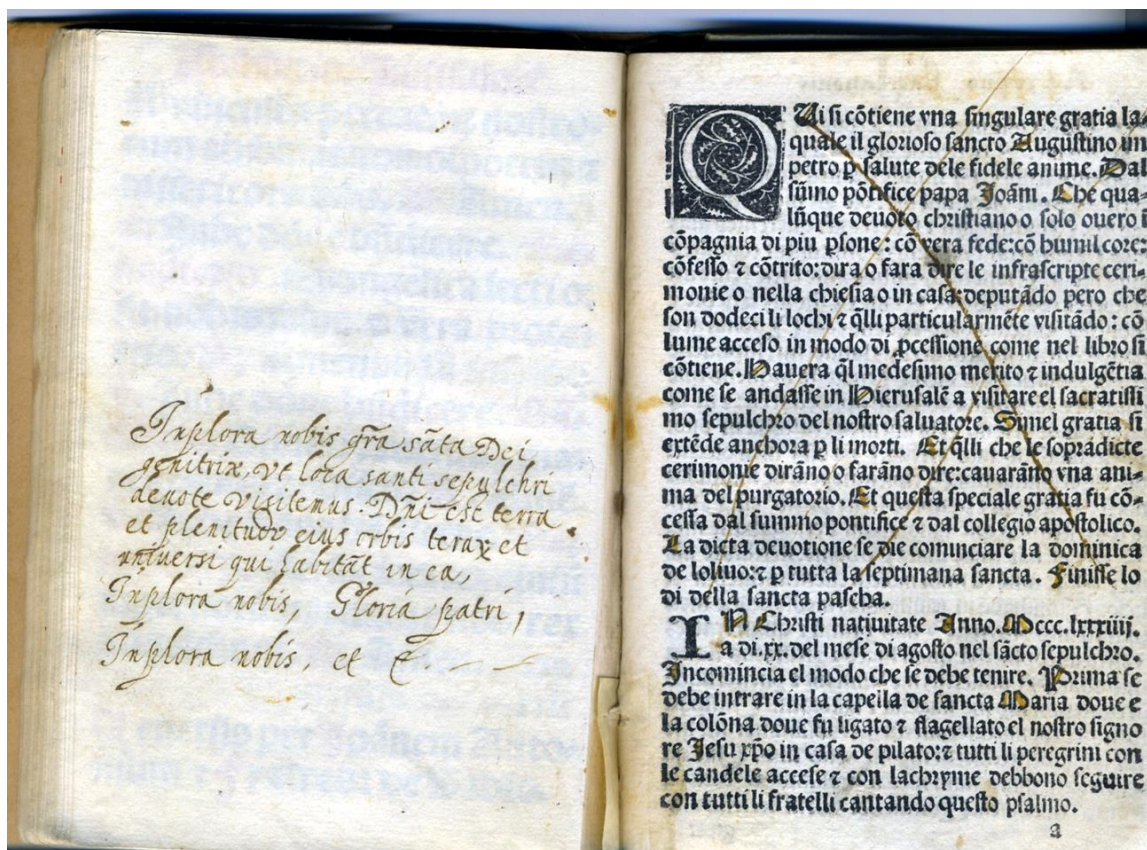 Inplora nobis gr̃a sãta Dei
genitrix, vt loca santi sepulchri
deuote visitemus. Dñi est terra
et plenitudo eius orbis teraꝝ et
vniuersi qui habitãt in ea,
Inplora nobis, Gloria patri,
Inplora nobis, et c̃.
QUi si cõtiene vna singulare gratia la-
quale il glorioso sancto Augustino im
petro ꝑ salute dele fidele anime. Dal
sũmo põtifice papa Joãni. Che qua-
lũque deuoto christiano o solo ouero i
cõpagnia di piu ꝑsone: cõ vera fede: cõ humil core:
cõfesso ⁊ cõtrito: dira o fara dire le infrascripte ceri-
monie o nella chiesia o in casa: deputãdo pero che
son dodeci li lochi ⁊ q̃lli particularmẽte visitãdo: cõ
lume acceso in modo di ꝓcessione come nel libro si
cõtiene. Hauera q̃l medesimo merito ⁊ indulgẽtia
come se andasse in Hierusalẽ a visitare el sacratissi
mo sepulchro del nostro saluatore. Simel gratia si
extẽde anchora ꝑ li morti. Et q̃lli che le sopradicte
cerimonie dirãno o farãno dire: cauarãno vna ani-
ma del purgatorio. Et questa speciale gratia fu cõ-
cessa dal summo pontifice ⁊ dal collegio apostolico.
La dicta deuotione se die cominciare la dominica
de loliuo: ⁊ ꝑ tutta la septimana sancta. Finisse lo
di della sancta pascha.
IN Christi natiuitate Anno. Mccc. lxxxiiij.
a di. xx. del mese di agosto nel sãcto sepulchro.
Incomincia el modo che se debe tenire. Prima se
debe intrare in la capella de sancta Maria doue e
la colõna doue fu ligato ⁊ flagellato el nostro signo
re Jesu xp̃o in casa de pilato: ⁊ tutti li peregrini con
le candele accese ⁊ con lachryme debbono seguire
con tutti li fratelli cantando questo psalmo.
a